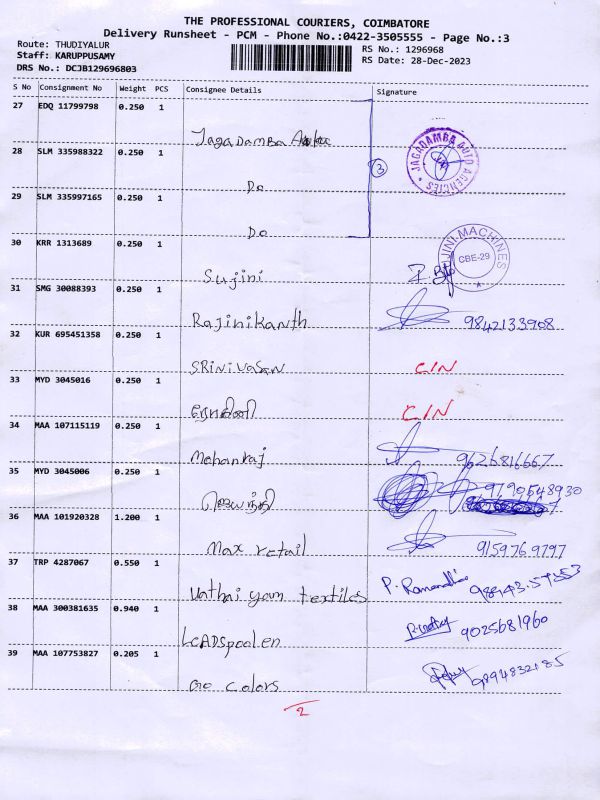 THE PROFESSIONAL COURIERS, COIMBATORE
Delivery Runsheet - PCM - Phone No.:0422-3505555 - Page No.:3
Route: THUDIYALUR
RS No.: 1296968
Staff: KARUPPUSAMY
RS Date: 28-Dec-2023
DRS No.: DCJB129696803
S No Consignment No Weight PCS Consignee Details Signature
27 EDQ 11799798 0.250 1
Jagadamba
28 SLM 335988322 0.250 1
3
JAGADAMBA AUTO AGENCIES
Do
29 SLM 335997165 0.250 1
Do
30 KRR 1313689 0.250 1
JINI MACHINES
CBE-29
Sujini
31 SMG 30088393 0.250 1
Rajinikanth 9842133908
32 KUR 695451358 0.250 1
SRinivasan CIN
33 MYD 3045016 0.250 1
CIN
34 MAA 107115119 0.250 1
Mohanraj 9626816667
35 MYD 3045006 0.250 1
9190548930
ஜெயந்தி
36 MAA 101920328 1.200 1
Max retail 9159769797
37 TRP 4287067 0.550 1
P. Ramandhi
Vathai yam textiles
38 MAA 300381635 0.940 1
9025681960
LCADSpoolen
39 MAA 107753827 0.205 1
9894832185
Go Colors
2